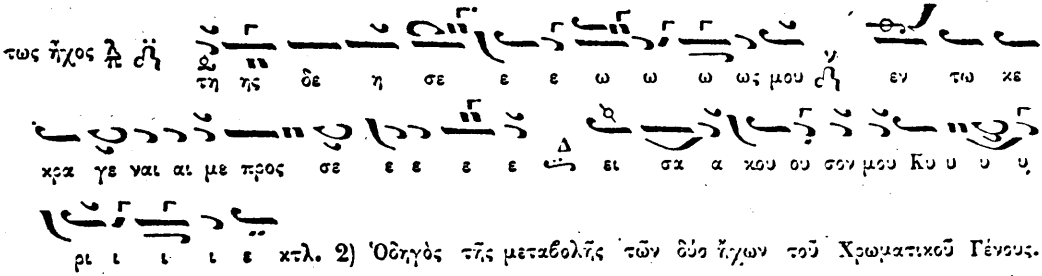 τως ἦχος λ π
τη ης δε η σε ε ε ω ω ω ως μου εν τω κε
κρα γε ναι αι με προς σε ε ε ε ε Δ ει σα α κου ου σον μου Κυ υ υ υ
ρι ι ι ι ε κτλ. 2) Ὁδηγὸς τῆς μεταβολῆς τῶν δύο ἤχων τοῦ Χρωματικοῦ Γένους.